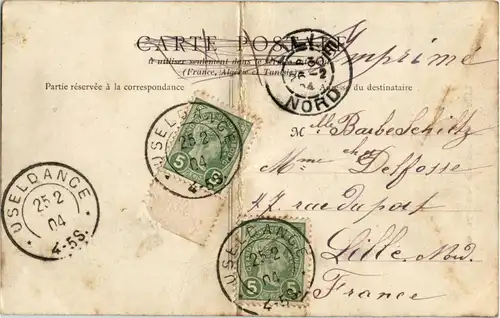 CARTE POSTALE
à utiliser seulement dans le
(France, Algérie et Tunisie)
Imprimé
Partie réservée à la correspondance
Adresse du destinataire
LILLE
NORD
Mlle Barbe Schiltz
Mme chez Delfosse
47 rue du port
Lille Nord.
France
USELDANGE
25 2
04
4-5S.
USELDANGE
25 2
04
4-5S.
USELDANGE
25 2
04
4-5S.
5
5
5